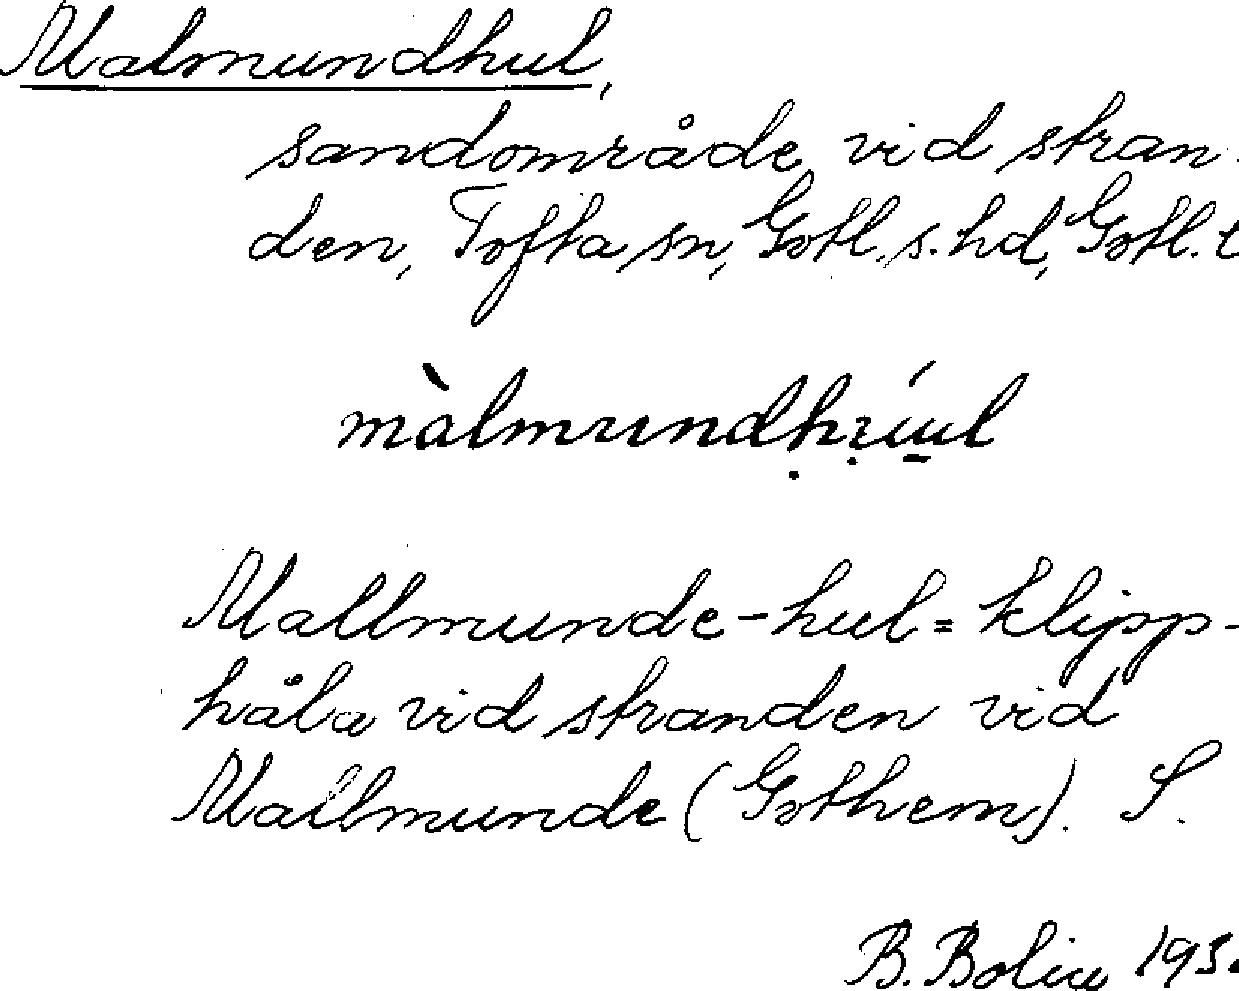 Malmundhul,
sandområde vid stran-
den, Tofta sn, Gotl. s. hd, Gotl. l
Mallmunde-hul = klipp-
håla vid stranden vid
Mallmunde (Gothem). S.
B. Bolin 193